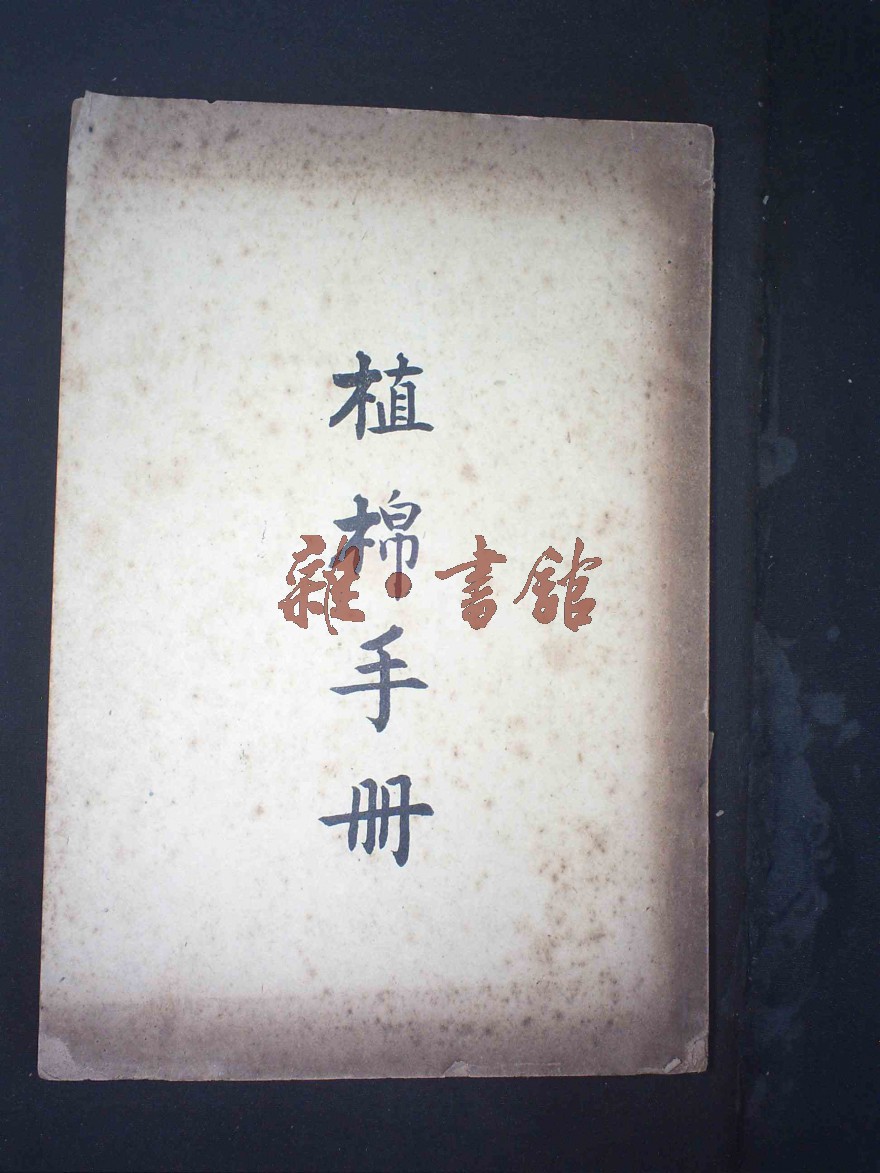 植棉手册
雜·書館